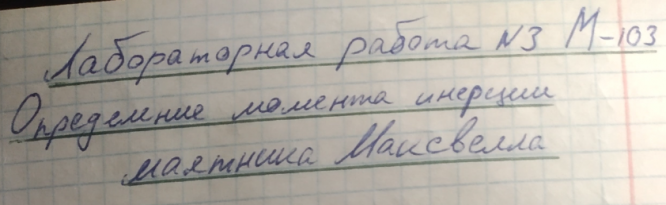 Лабораторная работа N3 М-103
Определение момента инерции
маятника Максвелла